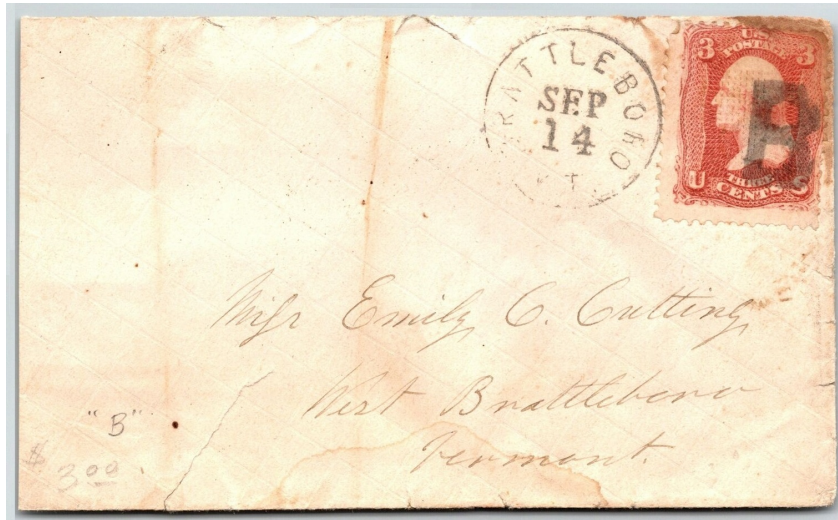 BRATTLEBORO
SEP
14
VT.
3 U.S. POSTAGE 3
B
U THREE CENTS S
Miſs Emily C. Cutting
West Brattleboro
Vermont.
"B"
$ 3.00